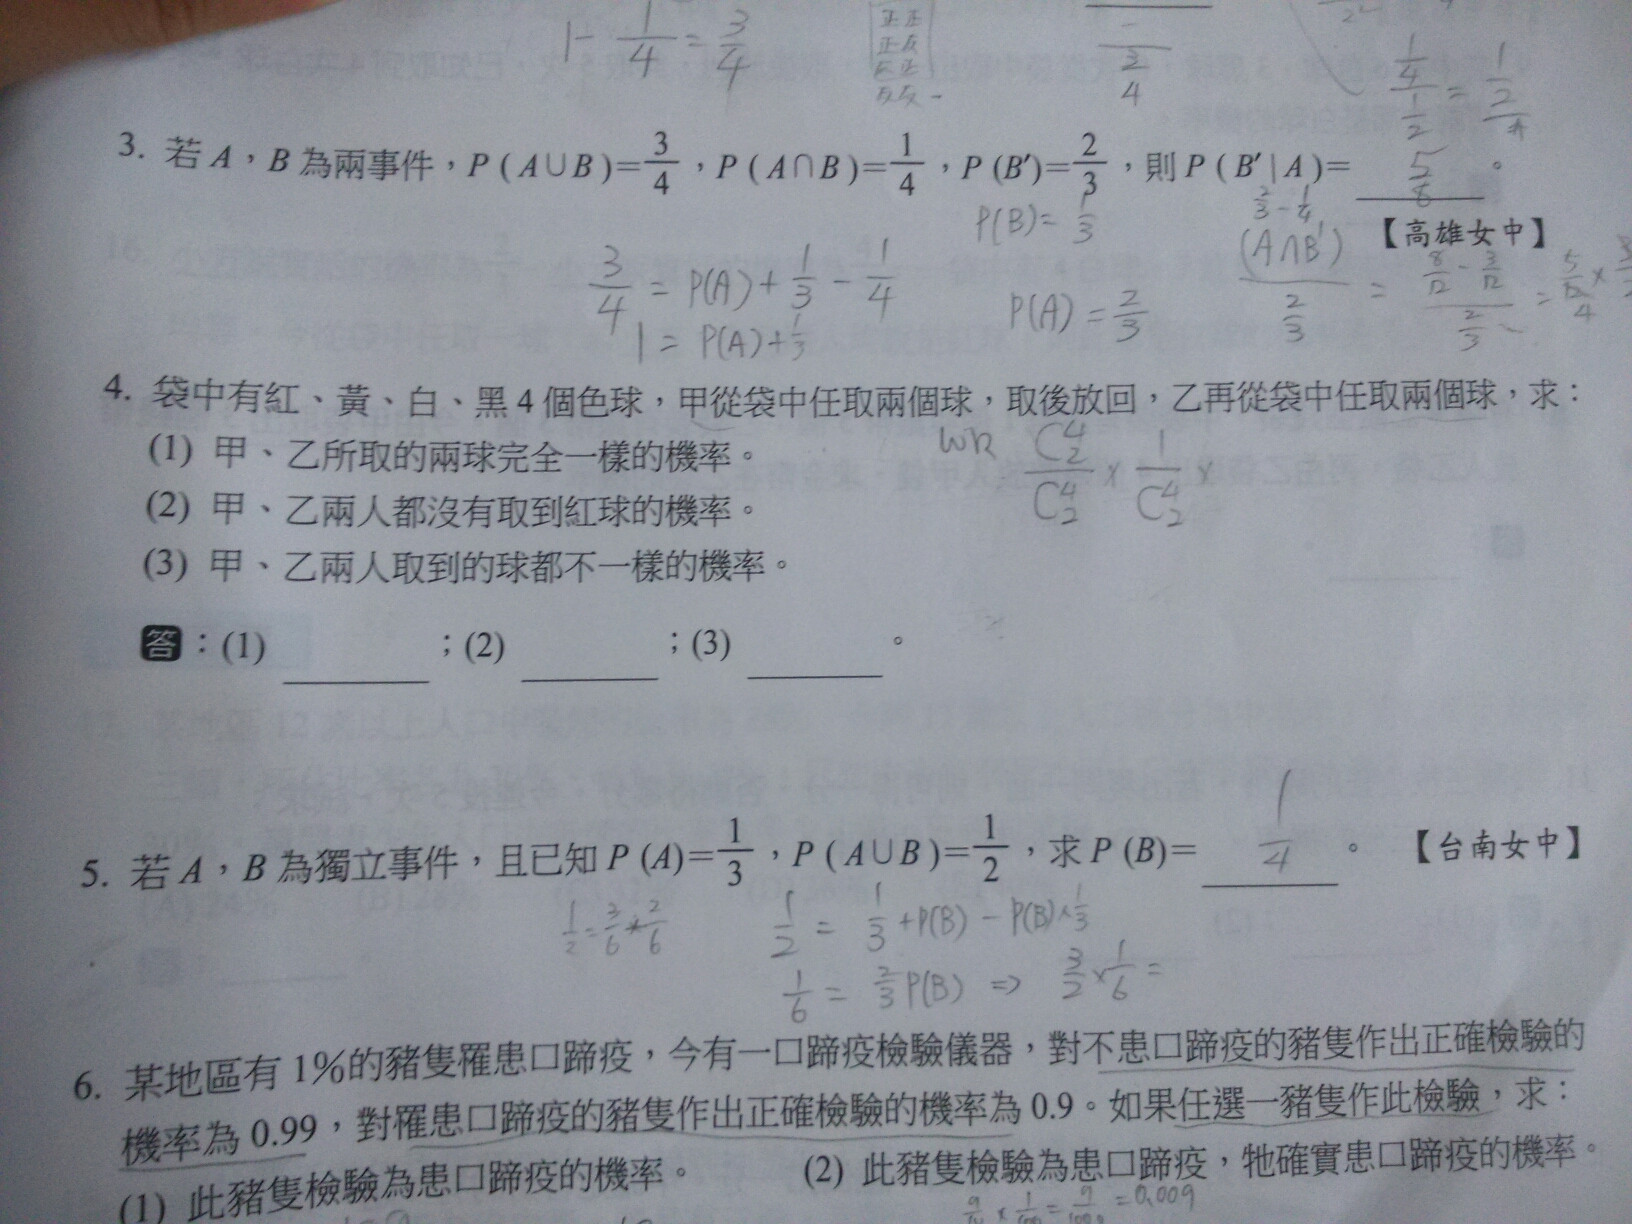 1 - 1/4 = 3/4
正正
正反
反正
反反
3/4
1/4 / 1/2 = 1/2
3. 若 A,B 為兩事件,P(A∪B)=3/4,P(A∩B)=1/4,P(B′)=2/3,則 P(B′|A)= 5/8 。
【高雄女中】
P(B)= 1/3
2/3 - 1/4
(A∩B′) / 2/3 = 8/12 - 3/12 / 2/3 = 5/12 ×
3/4 = P(A) + 1/3 - 1/4
P(A) = 2/3
1 = P(A) + 1/3
4. 袋中有紅、黃、白、黑 4 個色球,甲從袋中任取兩個球,取後放回,乙再從袋中任取兩個球,求:
(1) 甲、乙所取的兩球完全一樣的機率。
WR C⁴₂/C⁴₂ × 1/C⁴₂ ×
(2) 甲、乙兩人都沒有取到紅球的機率。
(3) 甲、乙兩人取到的球都不一樣的機率。
答:(1) ______ ;(2) ______ ;(3) ______ 。
5. 若 A,B 為獨立事件,且已知 P(A)=1/3,P(A∪B)=1/2,求 P(B)= 1/4 。 【台南女中】
1/2 = 3/6 2/6
1/2 = 1/3 + P(B) - P(B)×1/3
1/6 = 2/3 P(B) => 3/2 × 1/6 =
6. 某地區有 1%的豬隻罹患口蹄疫,今有一口蹄疫檢驗儀器,對不患口蹄疫的豬隻作出正確檢驗的
機率為 0.99,對罹患口蹄疫的豬隻作出正確檢驗的機率為 0.9。如果任選一豬隻作此檢驗,求:
(1) 此豬隻檢驗為患口蹄疫的機率。 (2) 此豬隻檢驗為患口蹄疫,牠確實患口蹄疫的機率。
= 0.009